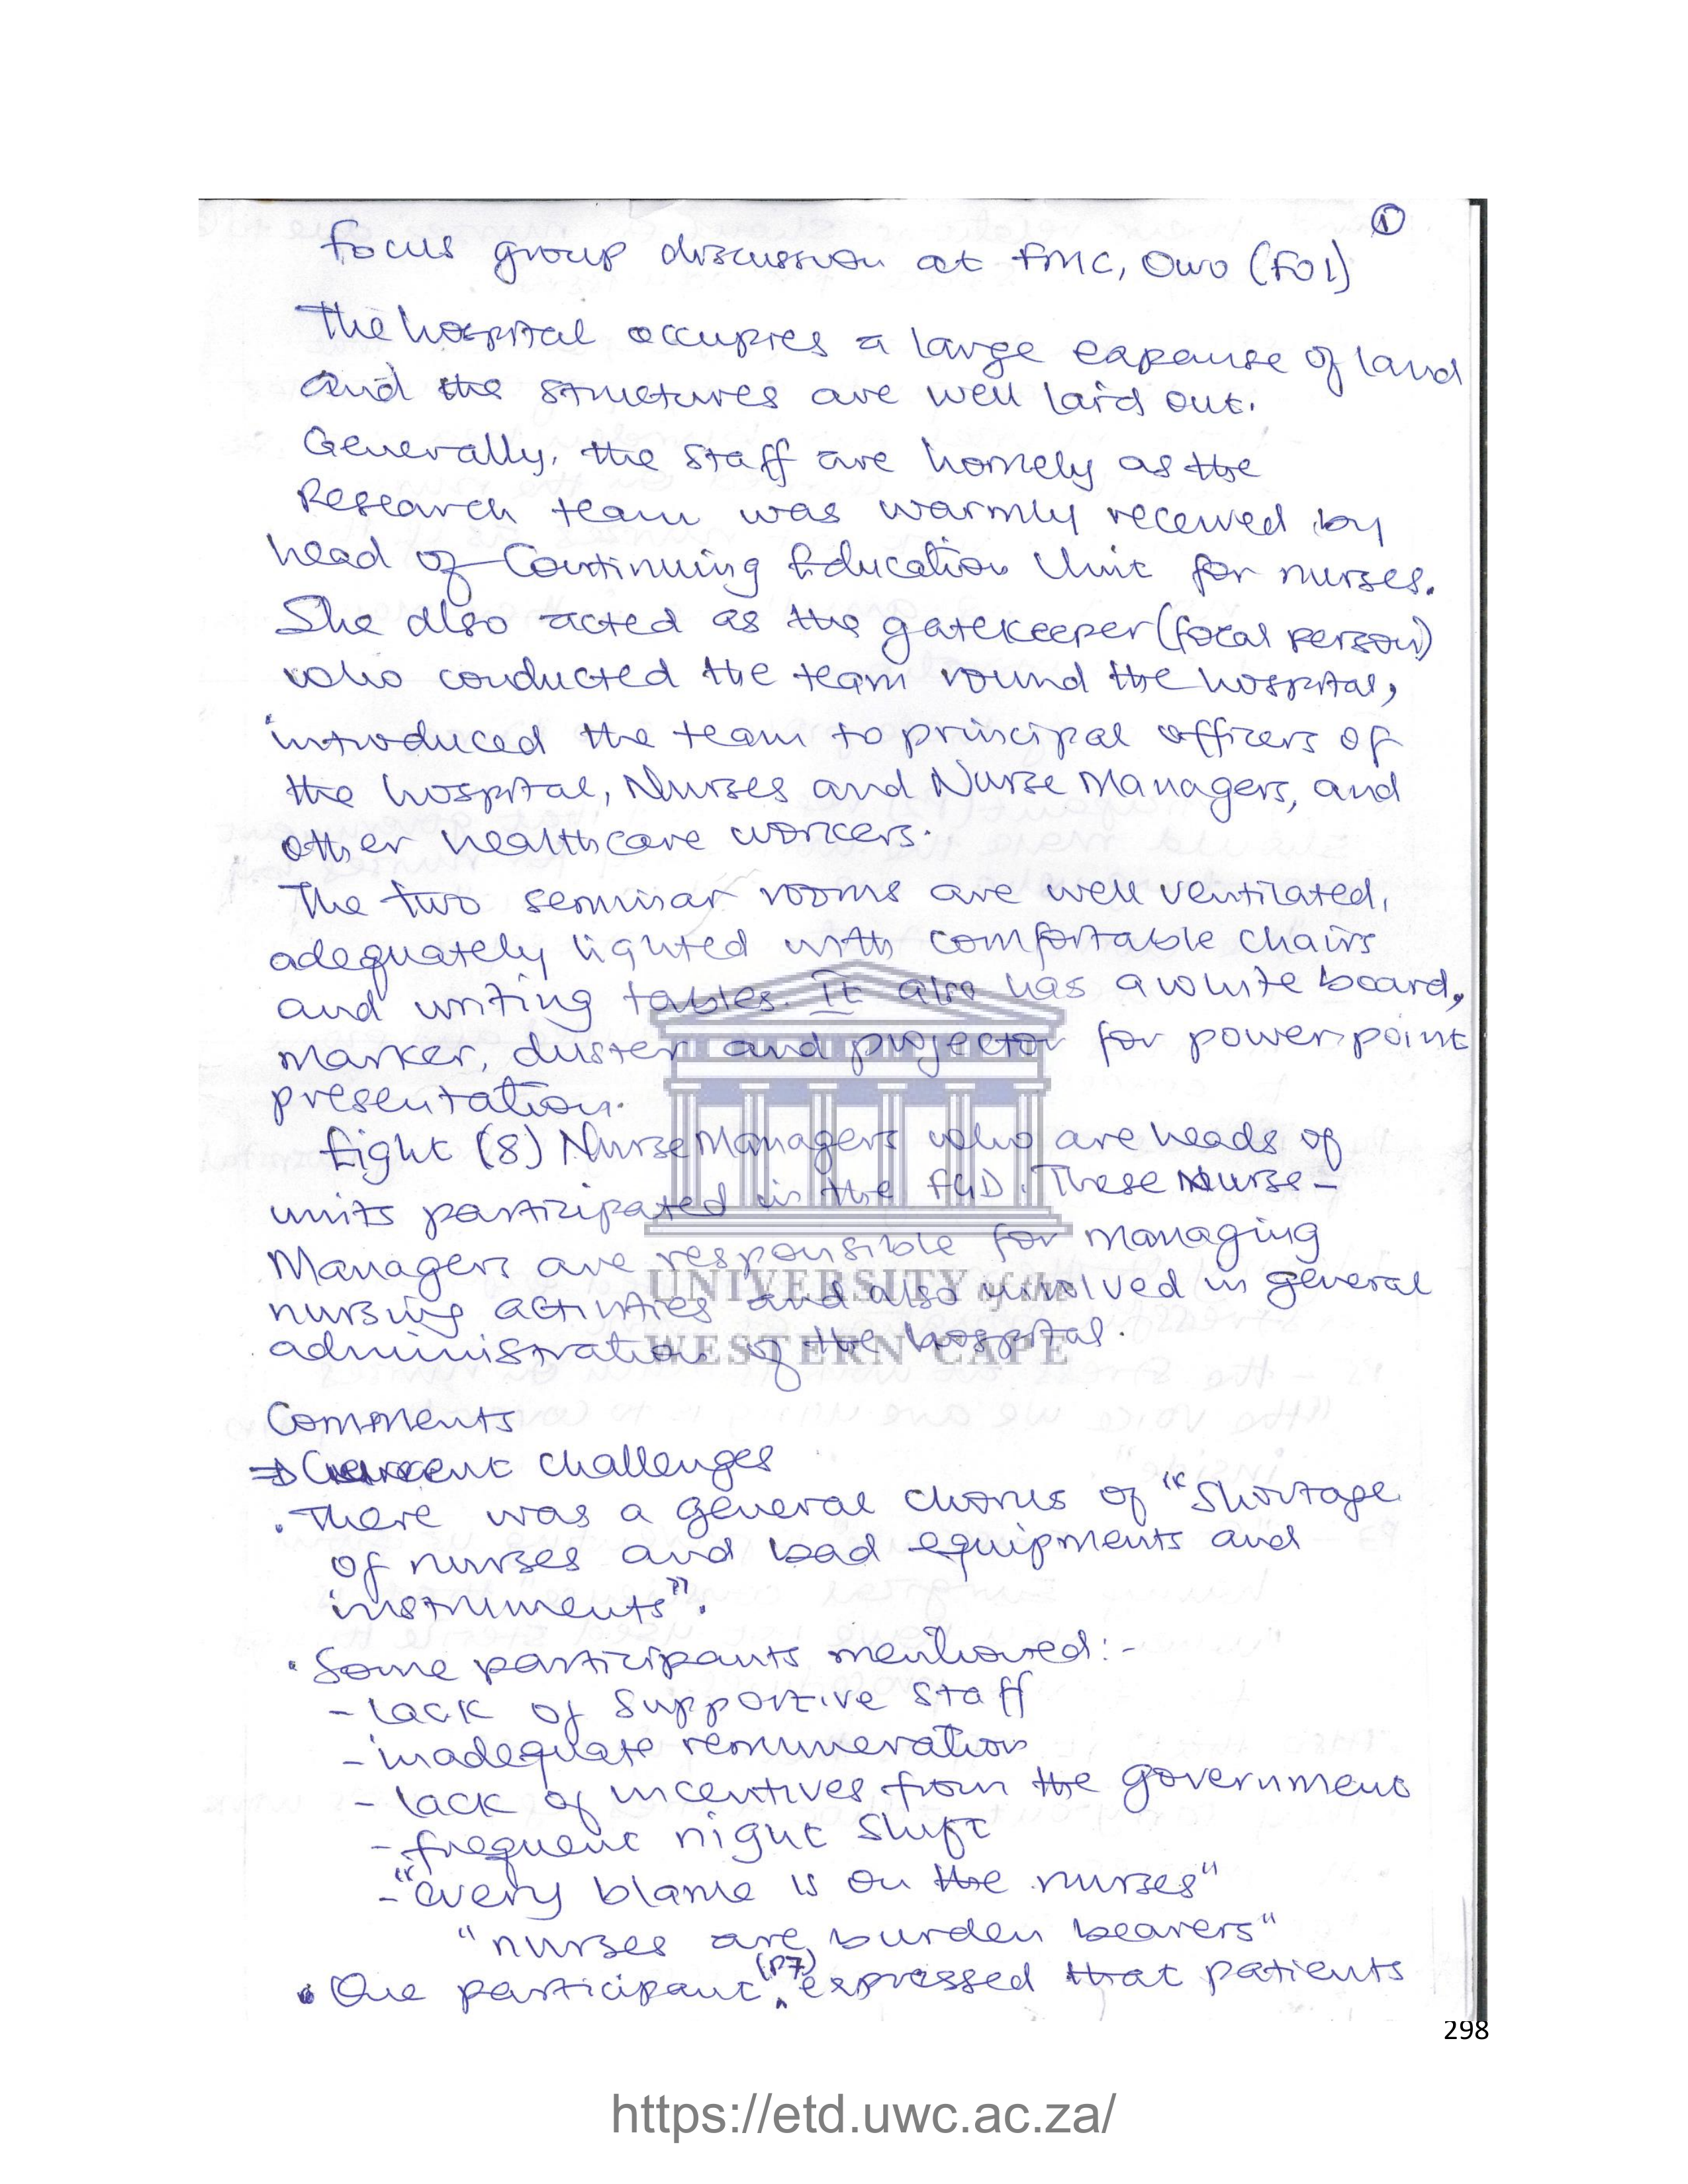 ①
Focus group discussion at FMC, Owo (F01)
The hospital occupies a large expanse of land
and the structures are well laid out.
Generally, the staff are homely as the
Research team was warmly received by
head of Continuing Education Unit for nurses.
She also acted as the gatekeeper (focal person)
who conducted the team round the hospital,
introduced the team to principal officers of
the hospital, Nurses and Nurse Managers, and
other healthcare workers.
The two seminar rooms are well ventilated,
adequately lighted with comfortable chairs
and writing tables. It also has a white board,
marker, duster and projector for powerpoint
presentation.
Eight (8) Nurse Managers who are heads of
units participated in the FGD. These Nurse-
Managers are responsible for managing
nursing activities and also involved in general
administration of the hospital.
UNIVERSITY of the
WESTERN CAPE
Comments
⇒ Current challenges
• There was a general chorus of "Shortage
of nurses and bad equipments and
instruments".
• Some participants mentioned:-
- lack of supportive staff
- inadequate remuneration
- lack of incentives from the government
- frequent night shift
- "every blame is on the nurses"
"nurses are burden bearers"
• One participant (P7) expressed that patients
298
https://etd.uwc.ac.za/